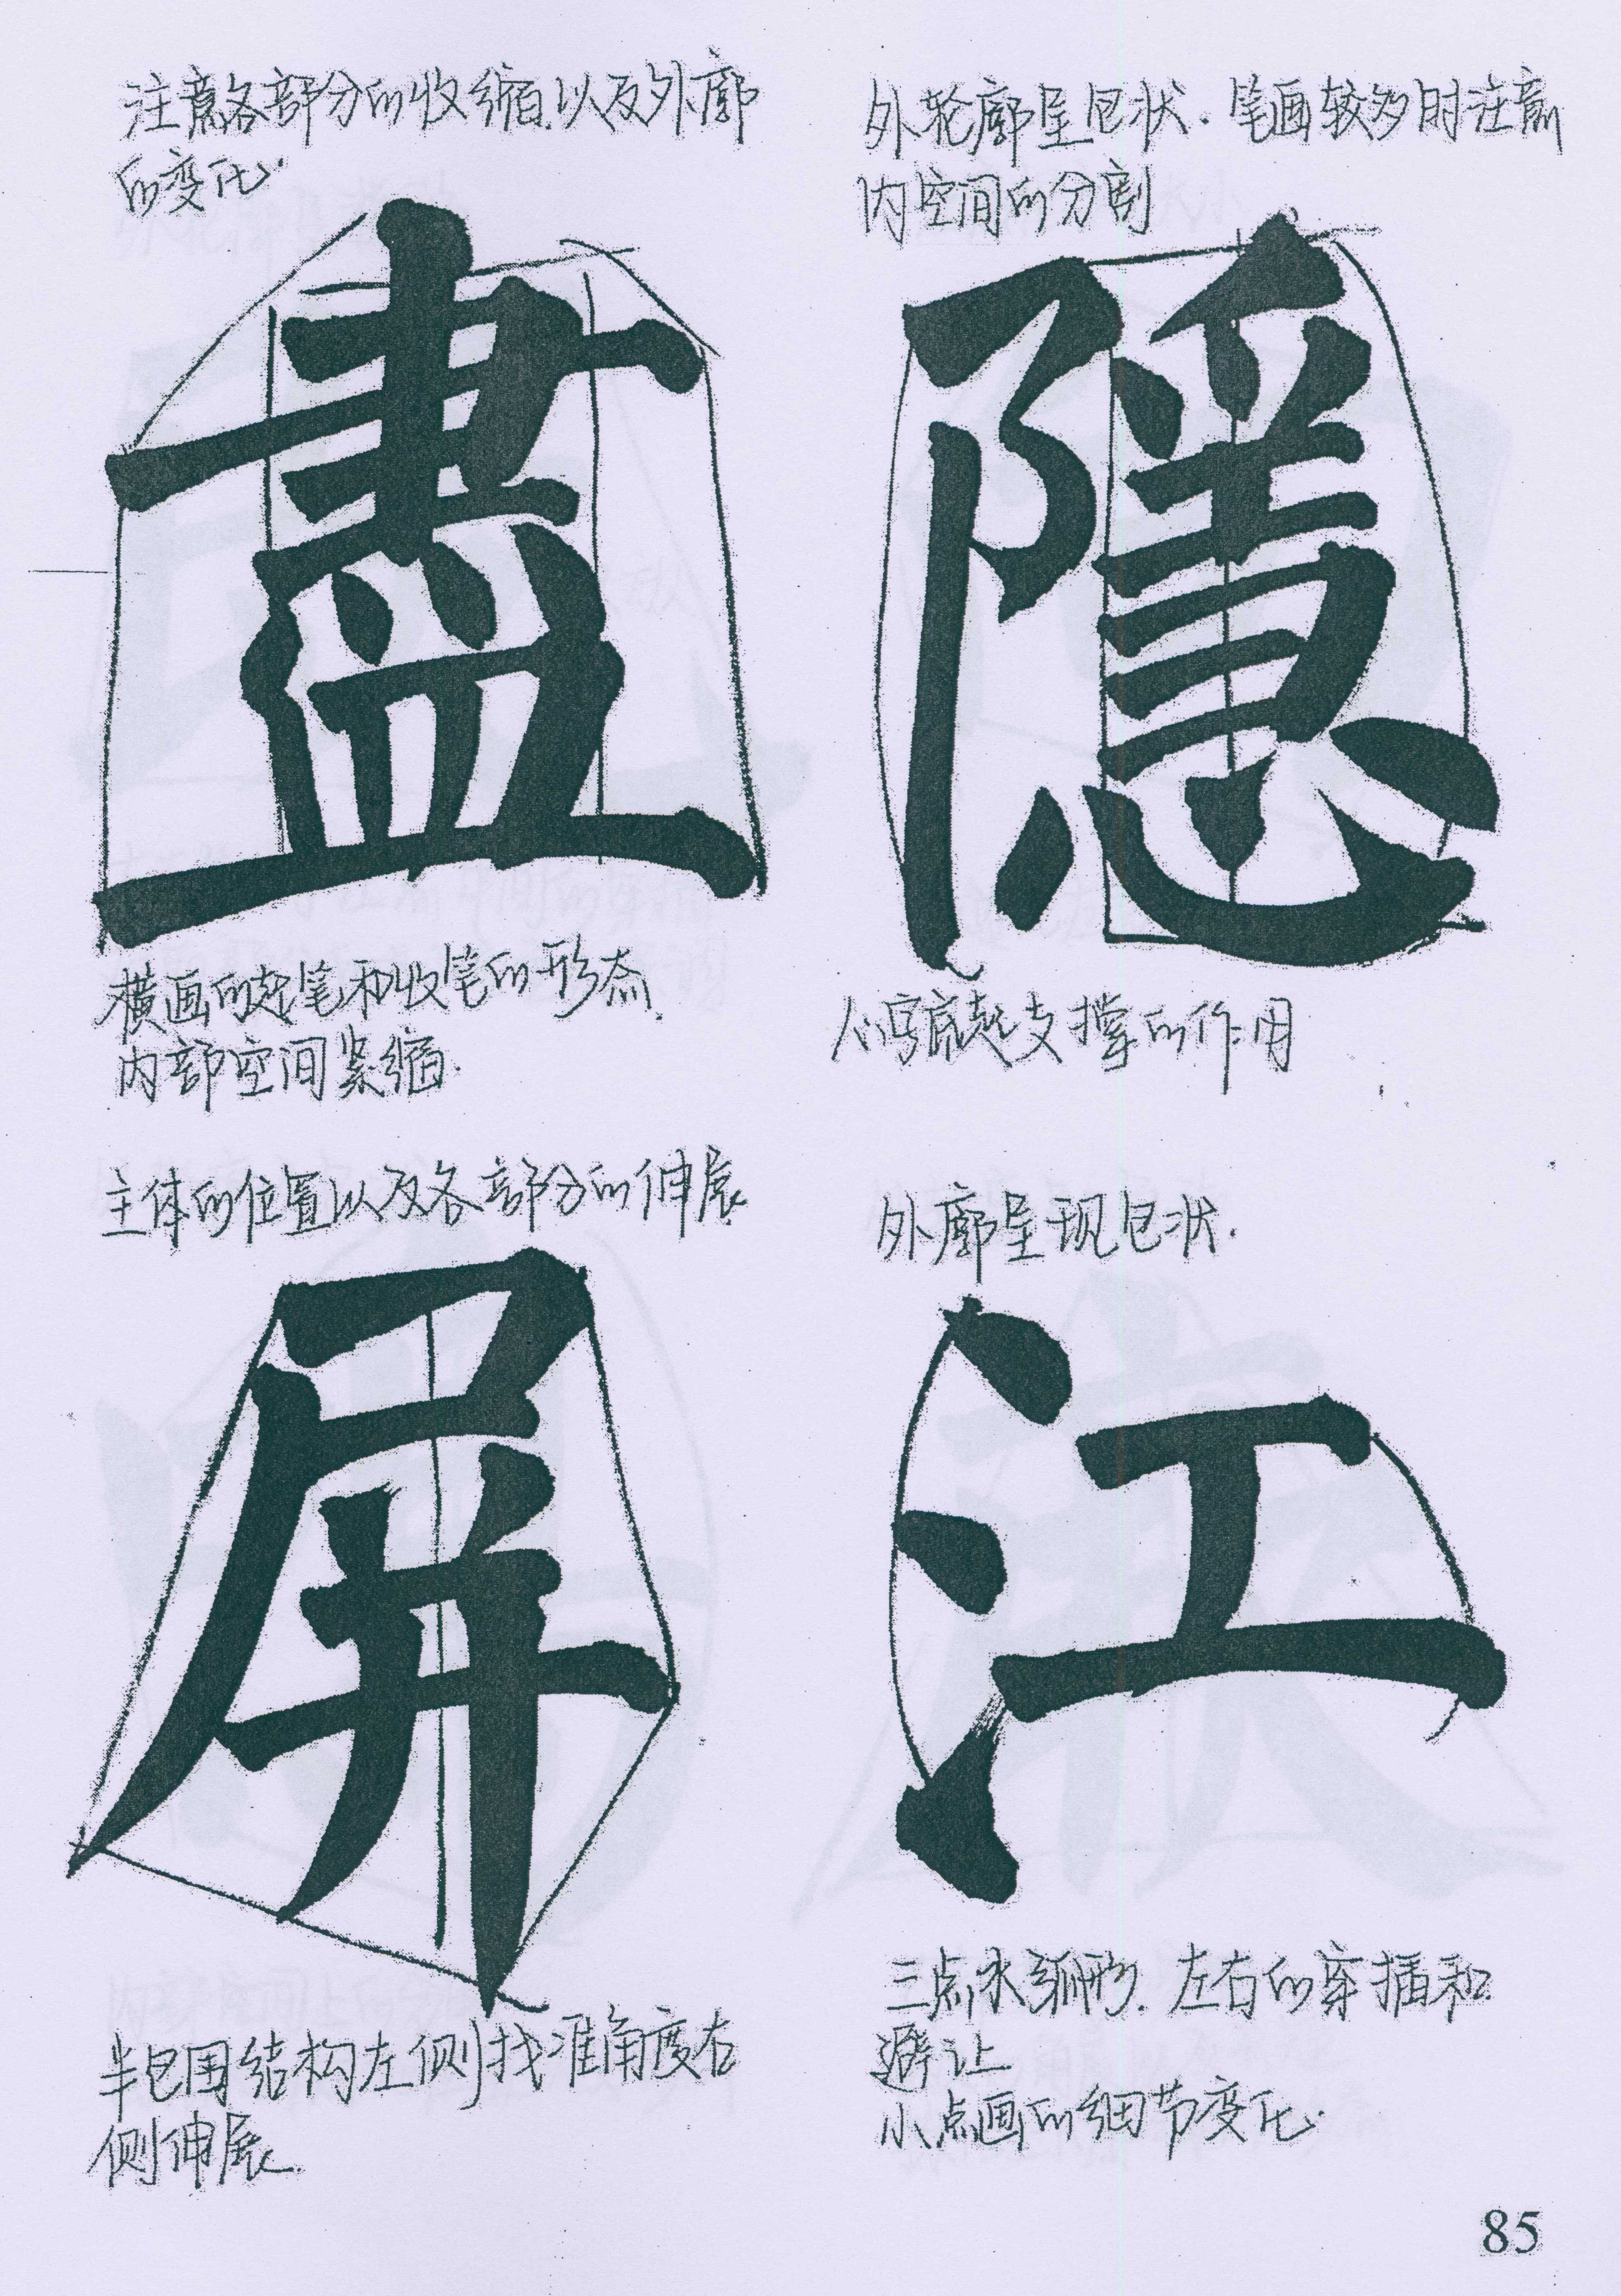 注意各部分的收缩.以及外廓
的变化.
盡
横画的起笔和收笔的形态.
内部空间紧缩.
外轮廓呈包状.笔画较多时注意
内空间的分割
隱
心字底起支撑的作用
主体的位置以及各部分的伸展.
屏
半包围结构左侧找准角度右
侧伸展.
外廓呈现包状.
江
三点水弧形.左右的穿插和
避让
小点画的细节变化.
85